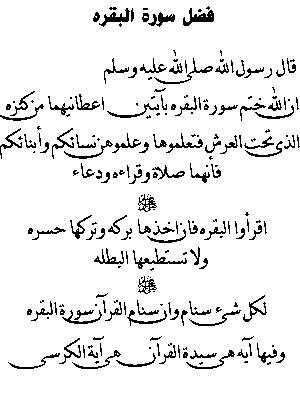 فضل سورة البقره
قال رسول الله صلى الله عليه وسلم
ان الله ختم سورة البقره بآيتين اعطانيهما من كنزه
الذى تحت العرش فتعلموها وعلموهن نسائكم وأبنائكم
فأنهما صلاة وقراءه ودعاء
ﷺ
اقرأوا البقره فان اخذها بركه وتركها حسره
ولا تستطيعها البطله
ﷺ
لكل شىء سنام وان سنام القرآن سورة البقره
وفيها آيه هى سيدة القرآن هى آية الكرسى